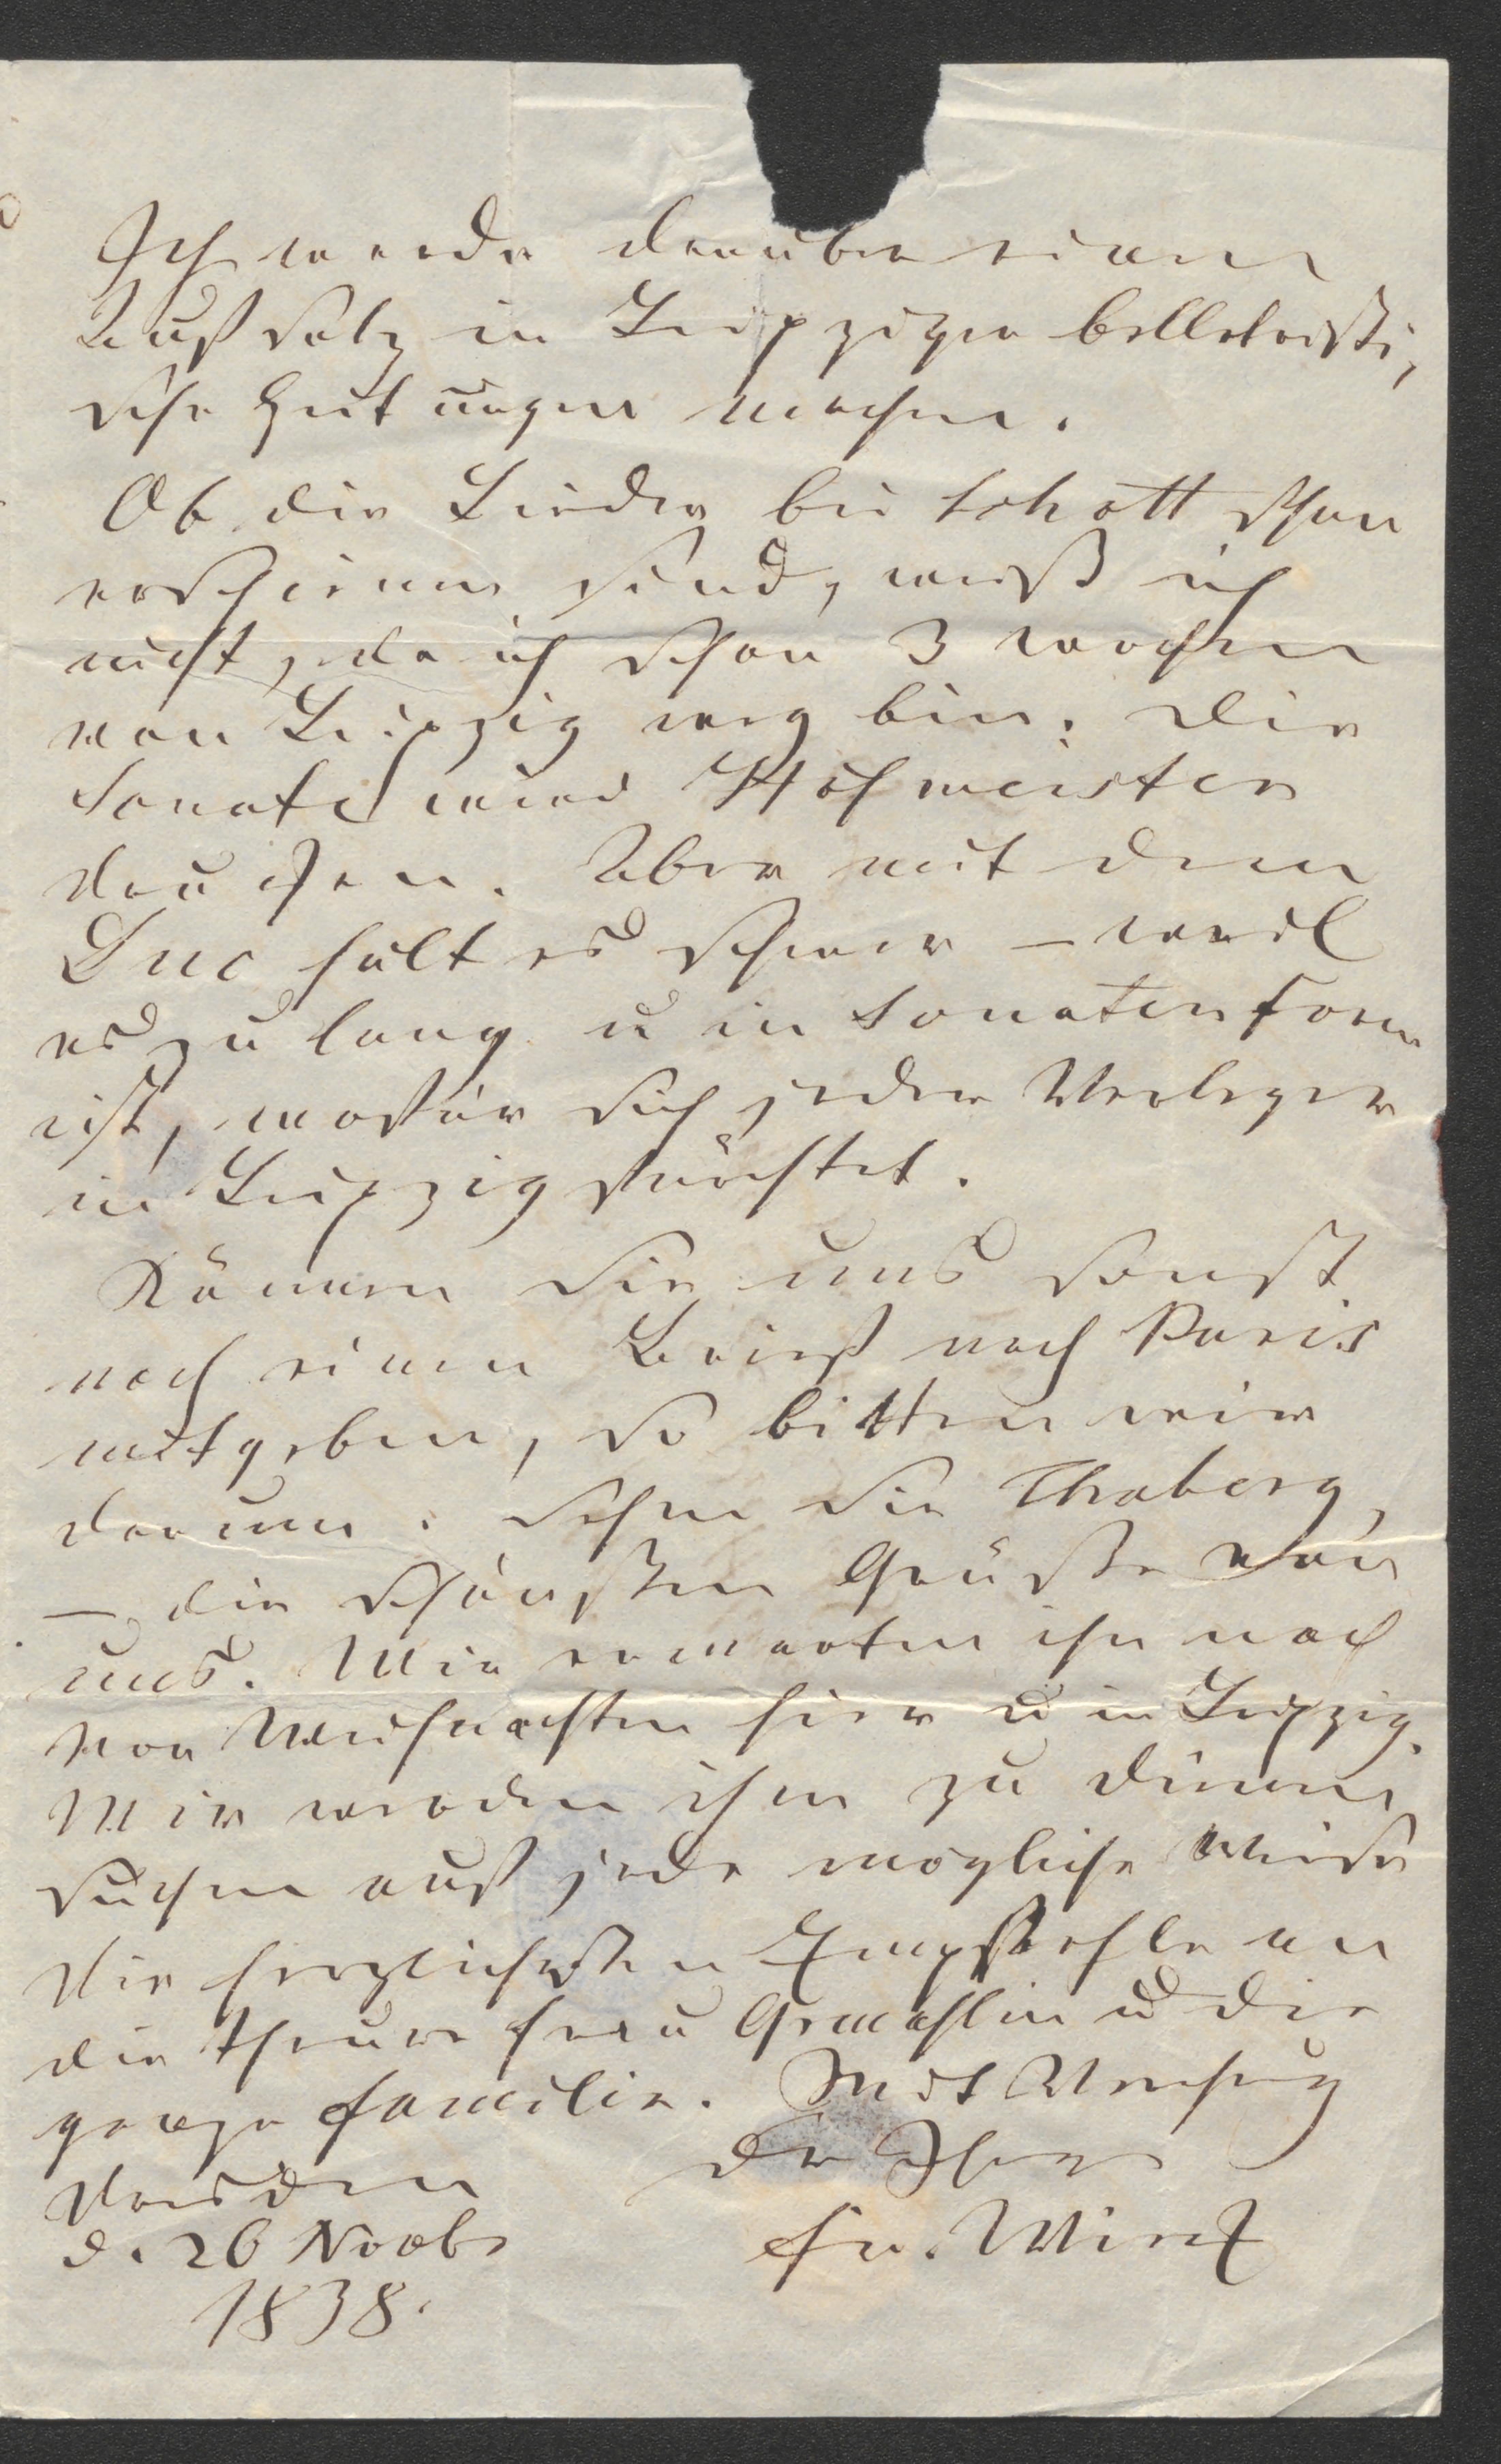 Ich werde darüber einen
Aufsatz in Leipziger belletristi,
sche Zeitungen machen.
Ob die Lieder bei Schott schon
erschienen sind, weiß ich
nicht, da ich schon 3 Wochen
von Leipzig weg bin. Die
Sonate wird Hofmeister
drucken. Aber mit dem
Duc hält es schwer – weil
es zu lang u in Sonatenform
ist, wofür sich jeder Verleger
in Leipzig fürchtet.
Können Sie uns sonst
noch einen Brief nach Paris
mitgeben, so bitten wir
darum. Sehen Sie Thalberg,
– die schönsten Grüße von
uns. Wir erwarten ihn noch
vor Weihnachten hier u in Leipzig.
Wir werden ihm zu dienen
suchen auf jede mögliche Weise
Die herzlichsten Empfehle an
die theure Frau Gemahlin u die
ganze Familie. Mit Verehrung
Dresden der Ihre
d. 26 Novbr Fr. Wieck
1838.